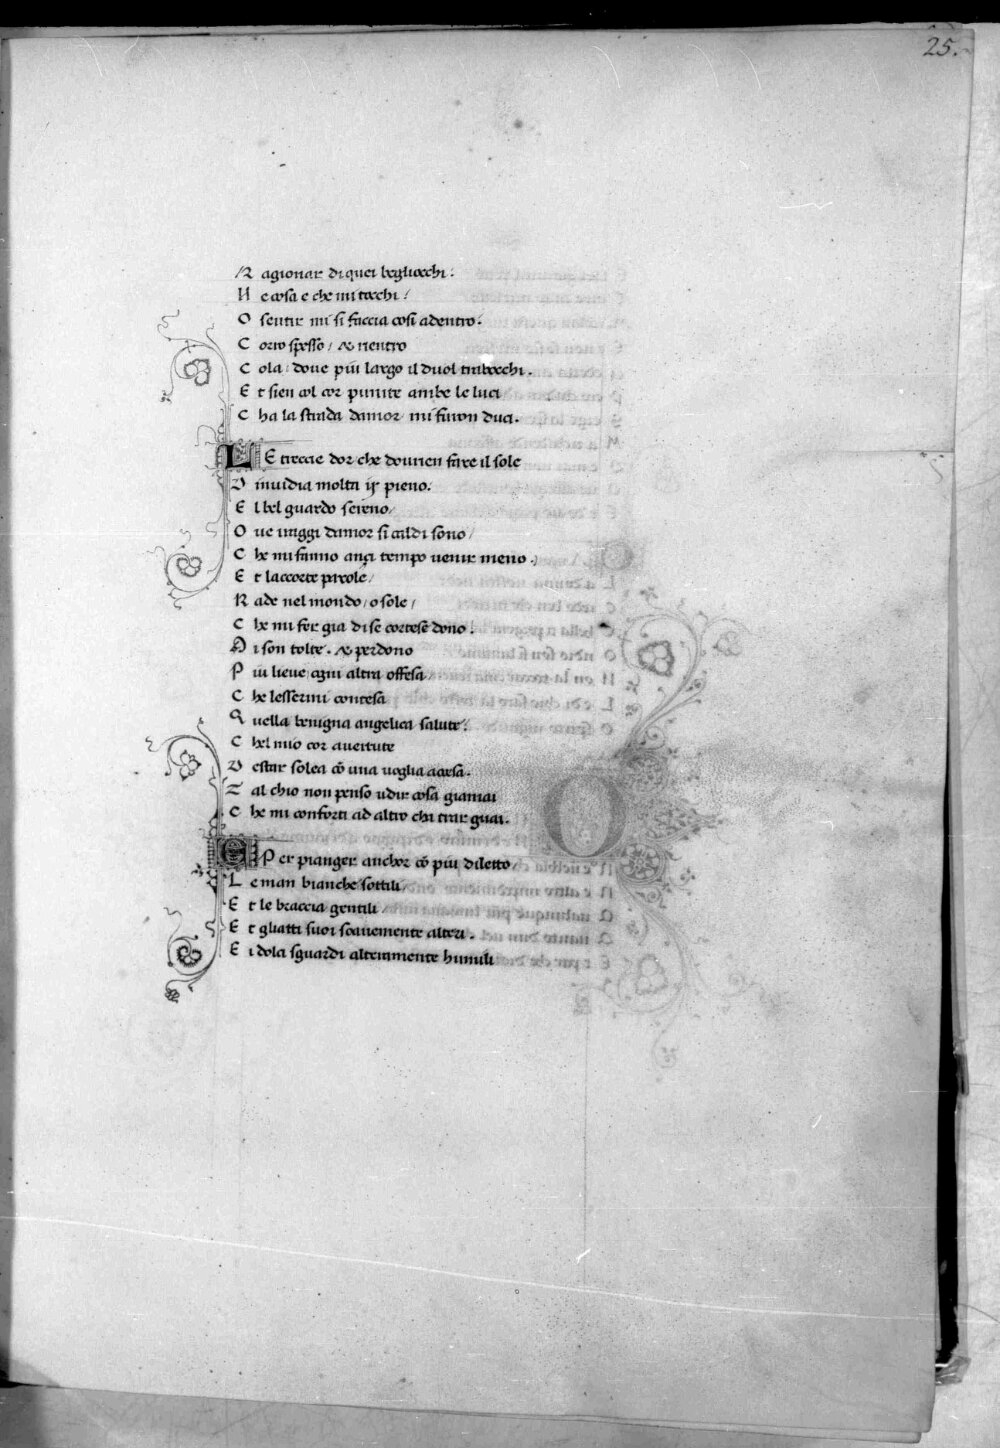 25.
R agionar di quei begliocchi:
N e cosa e che mi tocchi/
O sentir mi si faccia cosi adentro.
C orro spesso/ & rientro
C ola/ doue piu largo il duol trabocchi.
E t sien col cor punite ambe le luci
C ha la strada damor/ mi furon duci.
L E treccie dor che dourien fare il sole
D inuidia molta ir pieno.
E l bel guardo sereno/
O ue iraggi damor si caldi sono/
C he mi fanno anci tempo uenir meno.
E t laccorte parole/
R ade nel mondo/ o sole/
C he mi fer gia di se cortese dono.
M i son tolte. & perdono
P iu lieue ogni altra offesa
C he lessermi contesa
Q uella benigna angelica salute:
C hel mio cor a uertute
D estar solea cō una uoglia accesa.
T al chio non penso udir cosa giamai
C he mi conforti ad altro cha trar guai.
E Per pianger anchor cō piu diletto/
L e man bianche sottili/
E t le braccia gentili/
E t gliatti suoi soauemente alteri.
E i dolci sguardi alteramente humili